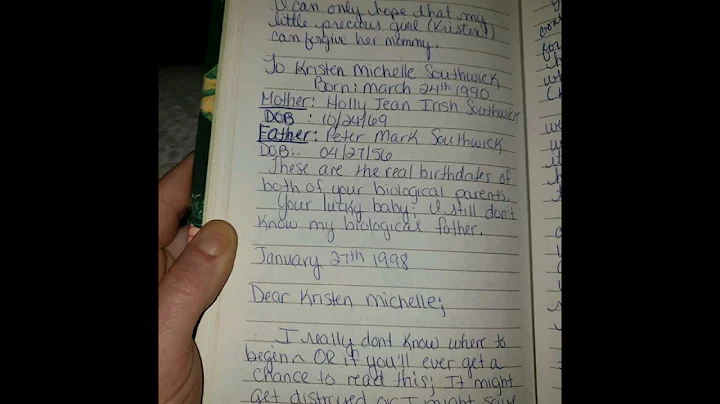 I can only hope that my
little precious girl (Kristen)
can forgive her mommy.
To Kristen Michelle Southwick
Born: March 24th 1990
Mother: Holly Jean Irish Southwick
DOB : 10/24/69
Father: Peter Mark Southwick
DOB:- 04/27/56
These are the real birthdates of
both of your biological parents.
Your lucky baby; I still don't
know my biological father.
January 27th 1998
Dear Kristen Michelle;
I really dont know where to
begin OR if you'll ever get a
chance to read this; It might
get distroyed or I might